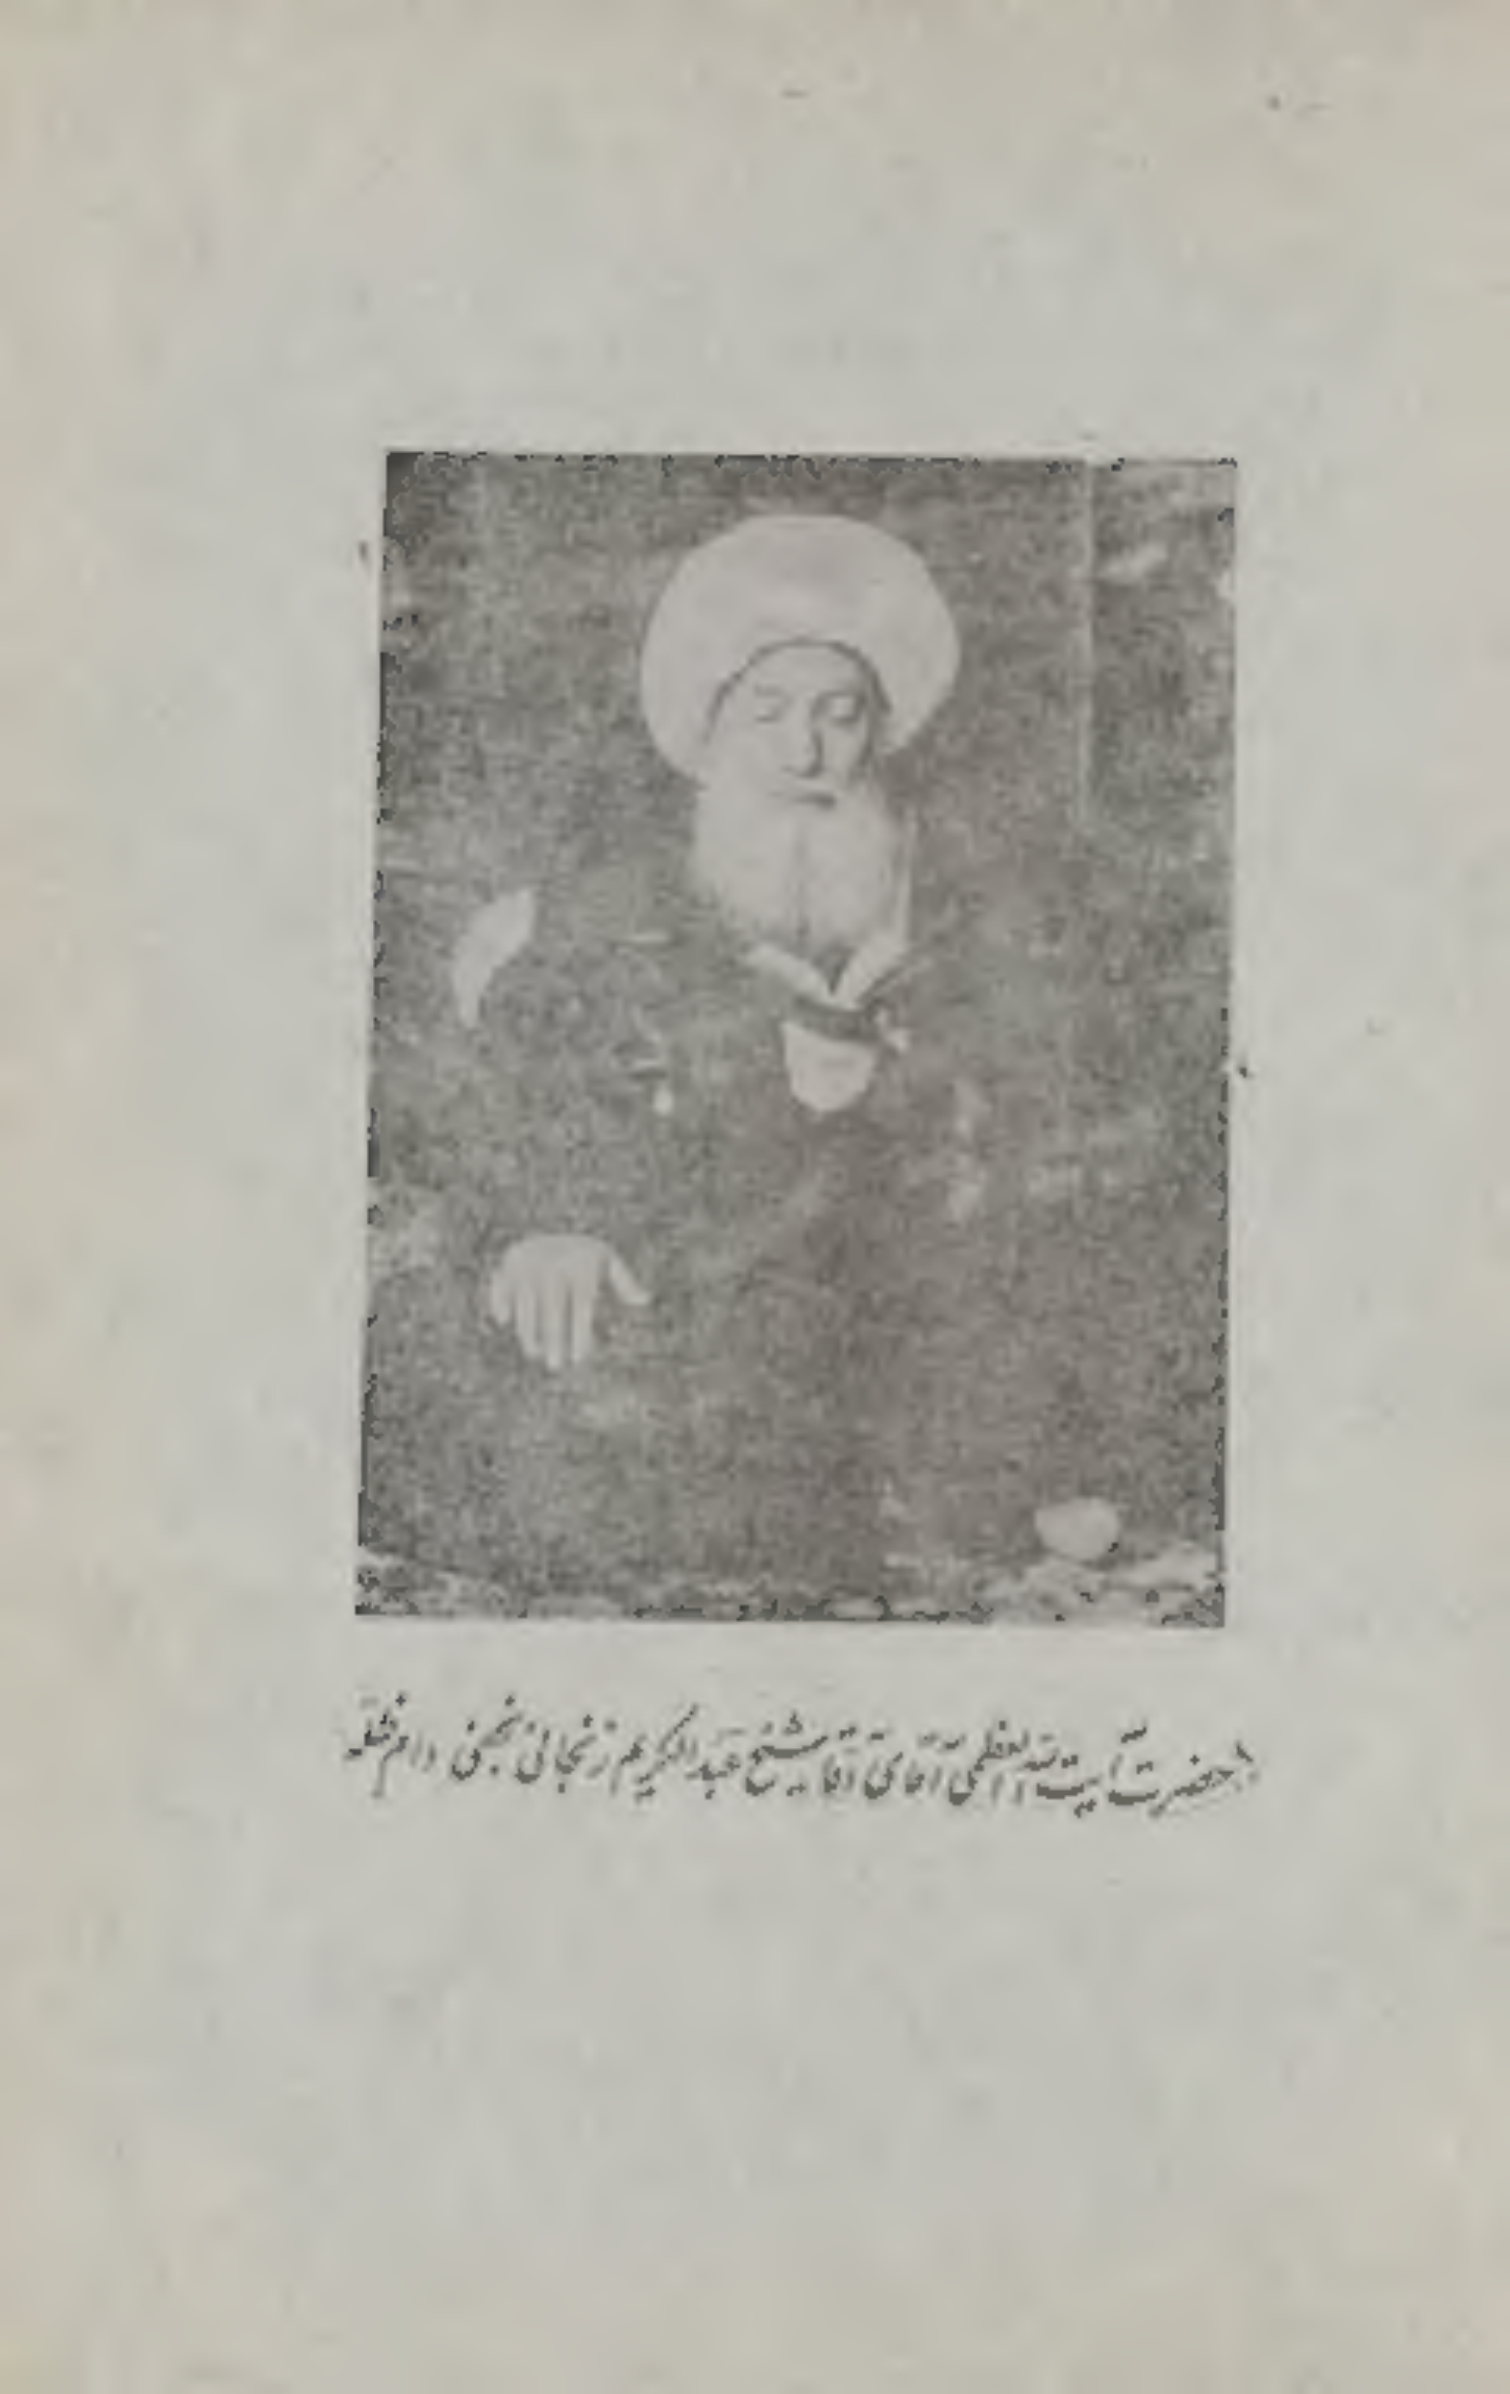 حضرت آیت الله العظمی آقای آقا شیخ عبدالکریم زنجانی نجفی دام ظله